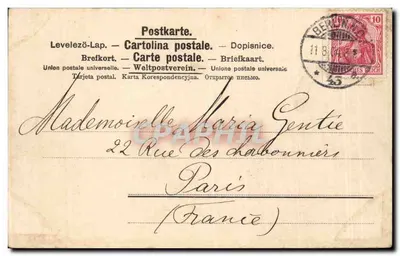 Postkarte.
Levelező-Lap. — Cartolina postale. — Dopisnice.
Brefkort. — Carte postale. — Briefkaart.
Union postale universelle. — Weltpostverein. — Unione postale universale.
Tarjeta postal. Karta Korespondencyjna. Открытое письмо.
BERLIN
10
43
Mademoiselle Maria Gentie
22 Rue des charbonniers
Paris
(France)
CPAPHIL